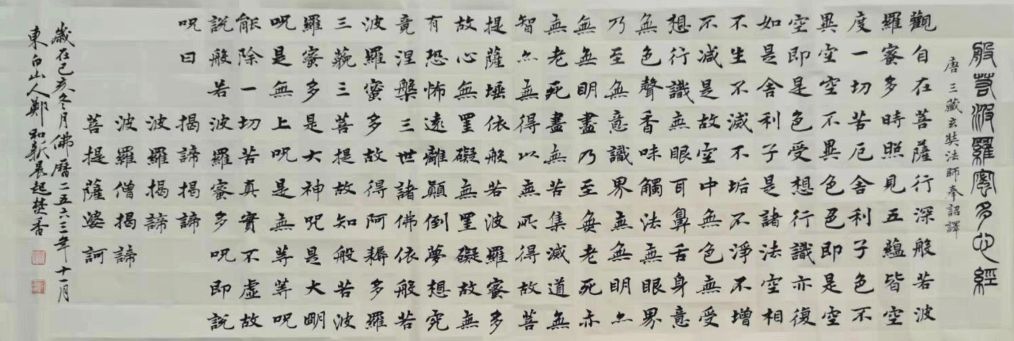 般若波羅蜜多心經
唐三藏玄奘法師奉詔譯
觀自在菩薩行深般若波
羅蜜多時照見五蘊皆空
度一切苦厄舍利子色不
異空空不異色色即是空
空即是色受想行識亦復
如是舍利子是諸法空相
不生不滅不垢不淨不增
不減是故空中無色無受
想行識無眼耳鼻舌身意
無色聲香味觸法無眼界
乃至無意識界無無明亦
無無明盡乃至無老死亦
無老死盡無苦集滅道無
智亦無得以無所得故菩
提薩埵依般若波羅蜜多
故心無罣礙無罣礙故無
有恐怖遠離顛倒夢想究
竟涅槃三世諸佛依般若
波羅蜜多故得阿耨多羅
三藐三菩提故知般若波
羅蜜多是大神呪是大明
呪是無上呪是無等等呪
能除一切苦真實不虛故
說般若波羅蜜多呪即說
呪曰 揭諦揭諦
波羅揭諦
波羅僧揭諦
菩提薩婆訶
歲在己亥冬月佛曆二五六三年十一月
東白山人鄭和新晨起焚香